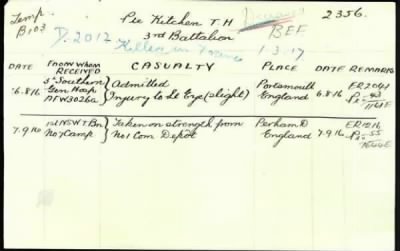 Temp Pte Kitchen T H 2356.
B103 3rd Battalion BEF
D.2012 Killed in France 1.3.17
DATE FROM WHOM RECEIVED CASUALTY PLACE DATE REMARKS
6.8.16 5th Southern Gen Hosp AFW3026a Admitted Injury to Lt Eye (slight) Portsmouth England 6.8.16
7.9.16 1st NSWT Bn No 4 Camp Taken on strength from No 1 Com Depot Perham D England 7.9.16